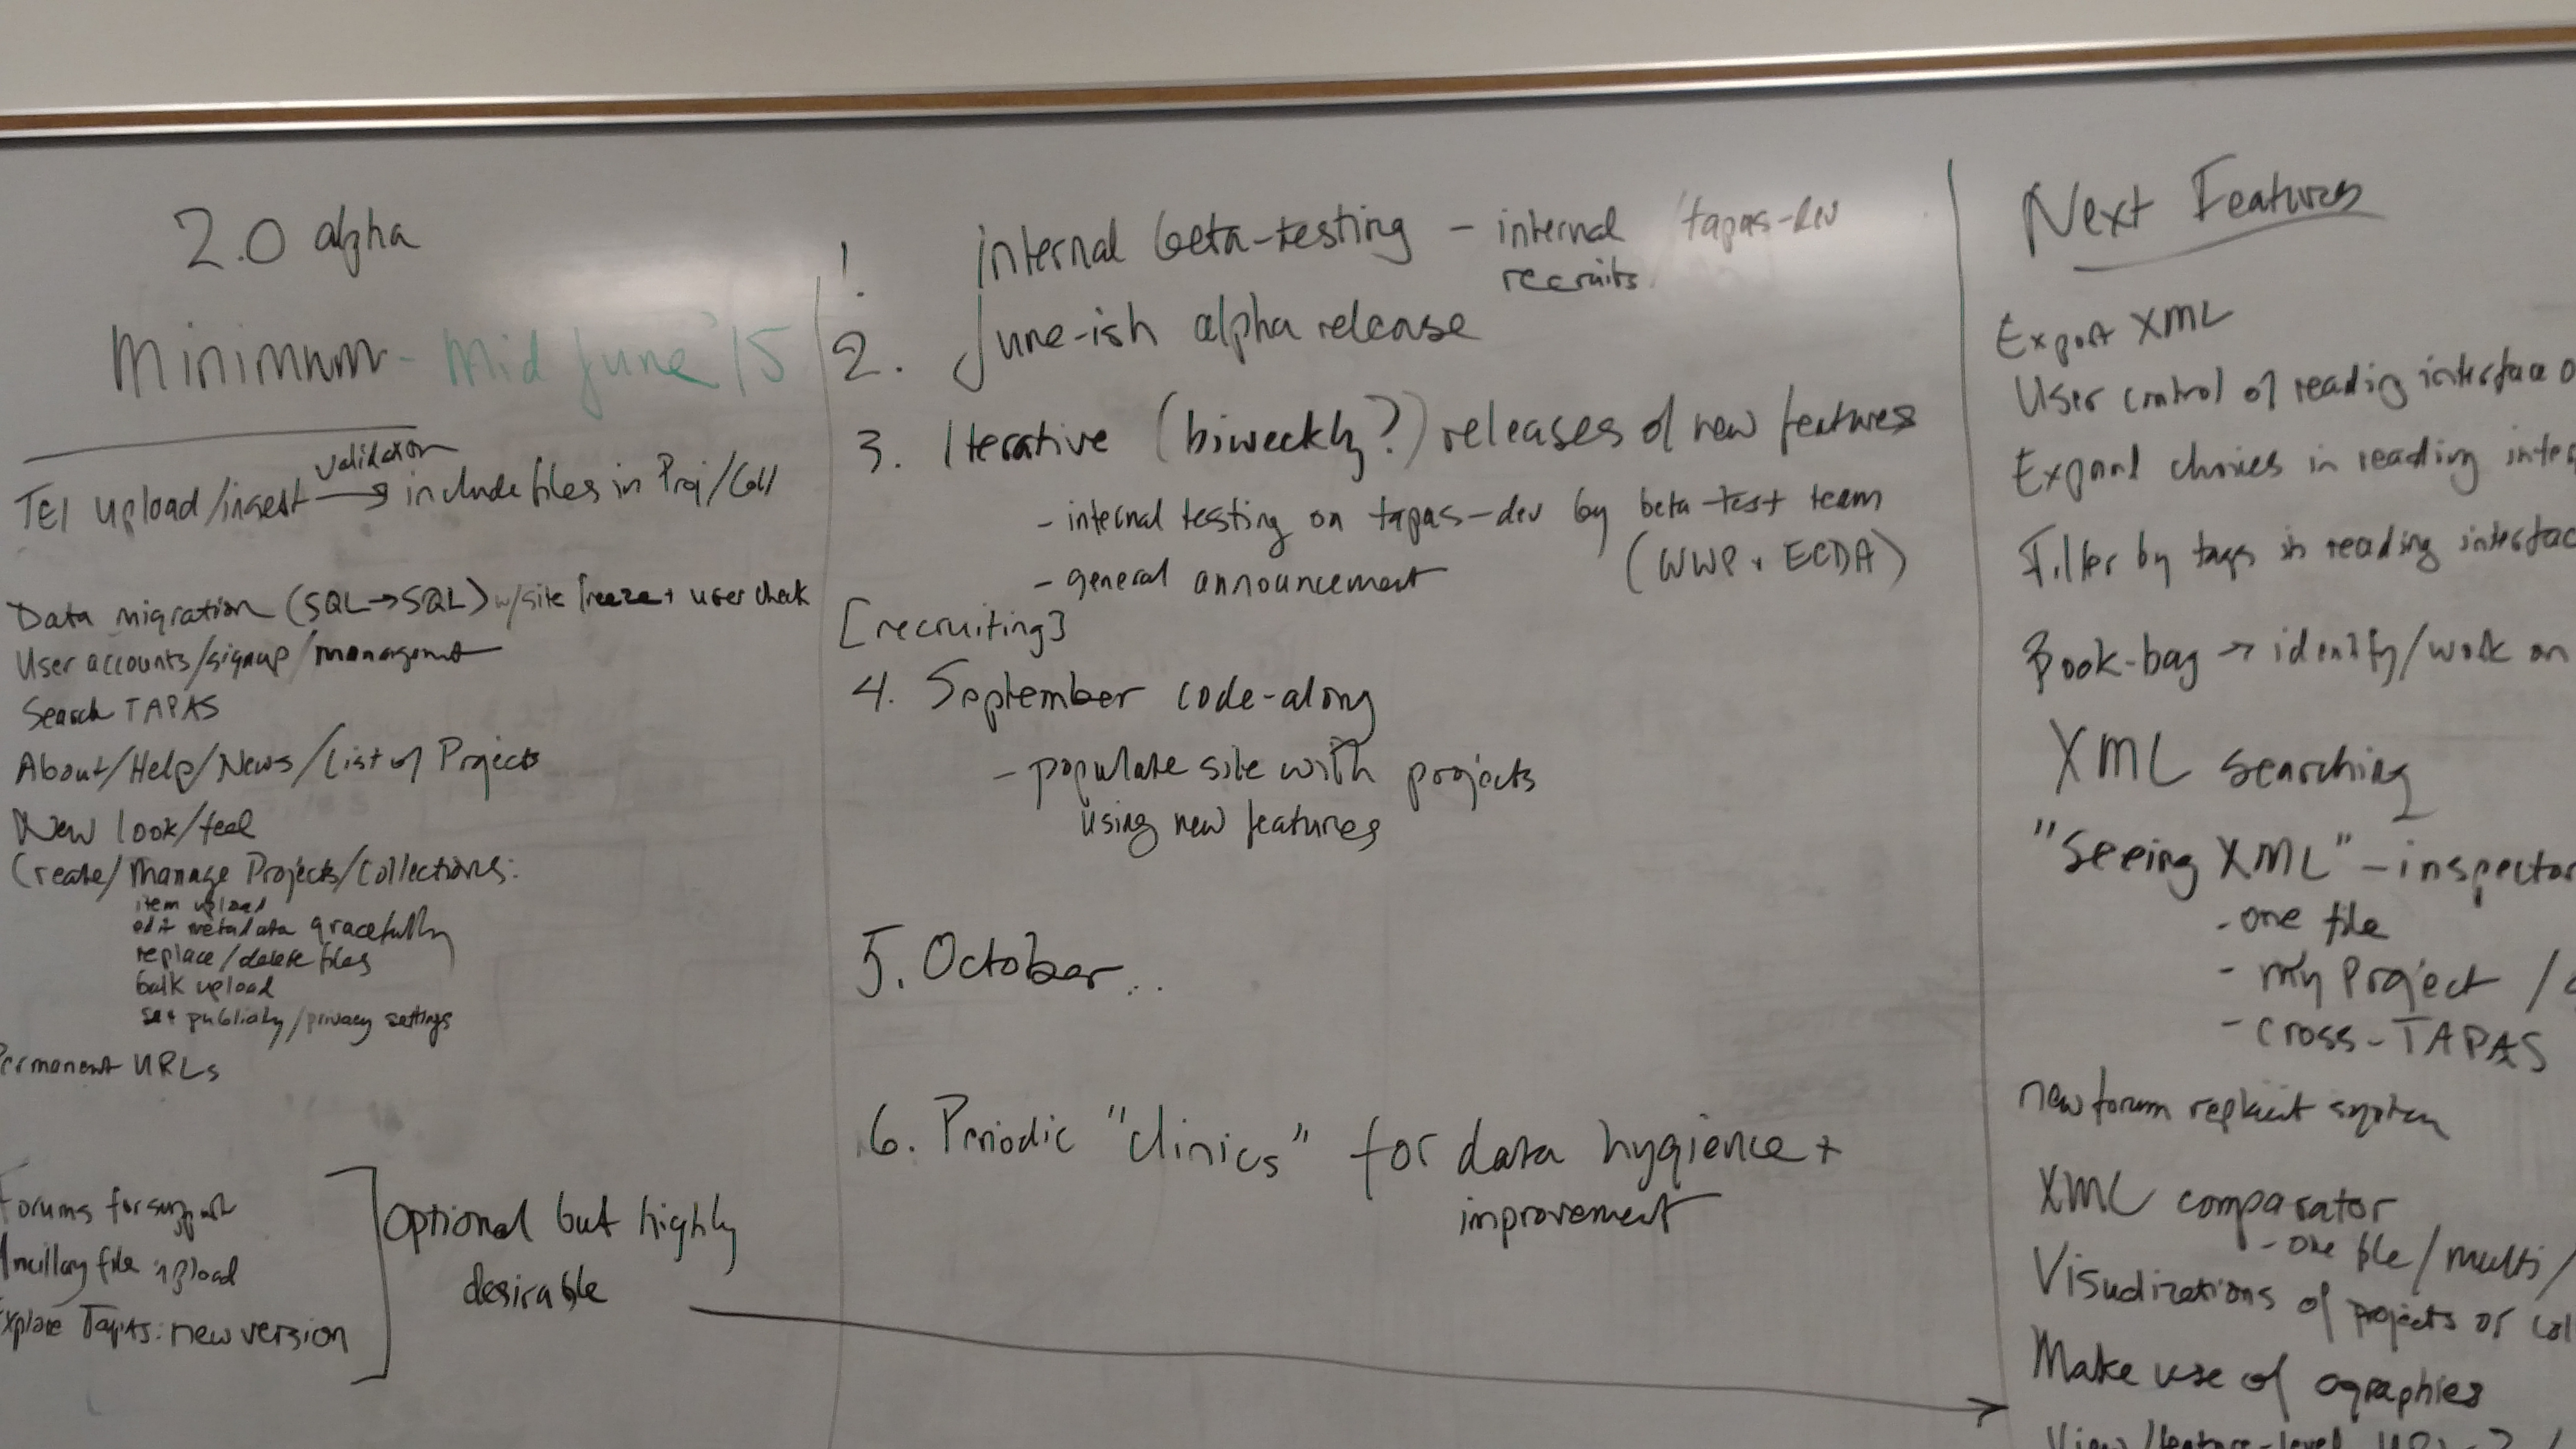 2.0 alpha
Minimum - Mid June '15
validation
TEI upload/ingest → include files in Proj/Coll
Data migration (SQL→SQL) w/site freeze + user check
User accounts/signup/management
Search TAPAS
About/Help/News/List of Projects
New look/feel
Create/Manage Projects/Collections:
item upload
edit metadata gracefully
replace/delete files
bulk upload
set publicity/privacy settings
Permanent URLs
Forums for support
Ancillary file upload
Explore TAPAS: new version
Optional but highly
desirable
1. internal beta-testing - internal tapas-dev
recruits
2. June-ish alpha release
3. Iterative (biweekly?) releases of new features
- internal testing on tapas-dev by beta-test team
(WWP + ECDA)
- general announcement
[recruiting]
4. September code-along
- populate site with projects
using new features
5. October...
6. Periodic "clinics" for data hygience +
improvement
Next Features
Export XML
User control of reading interface
Expand choices in reading
Filter by tags in reading
Book-bag → identify/work on
XML searching
"Seeing XML" - inspector
- one file
- my project /
- cross-TAPAS
new forum system
XML comparator
- one file/multi/
Visualizations of projects or
Make use of ographies